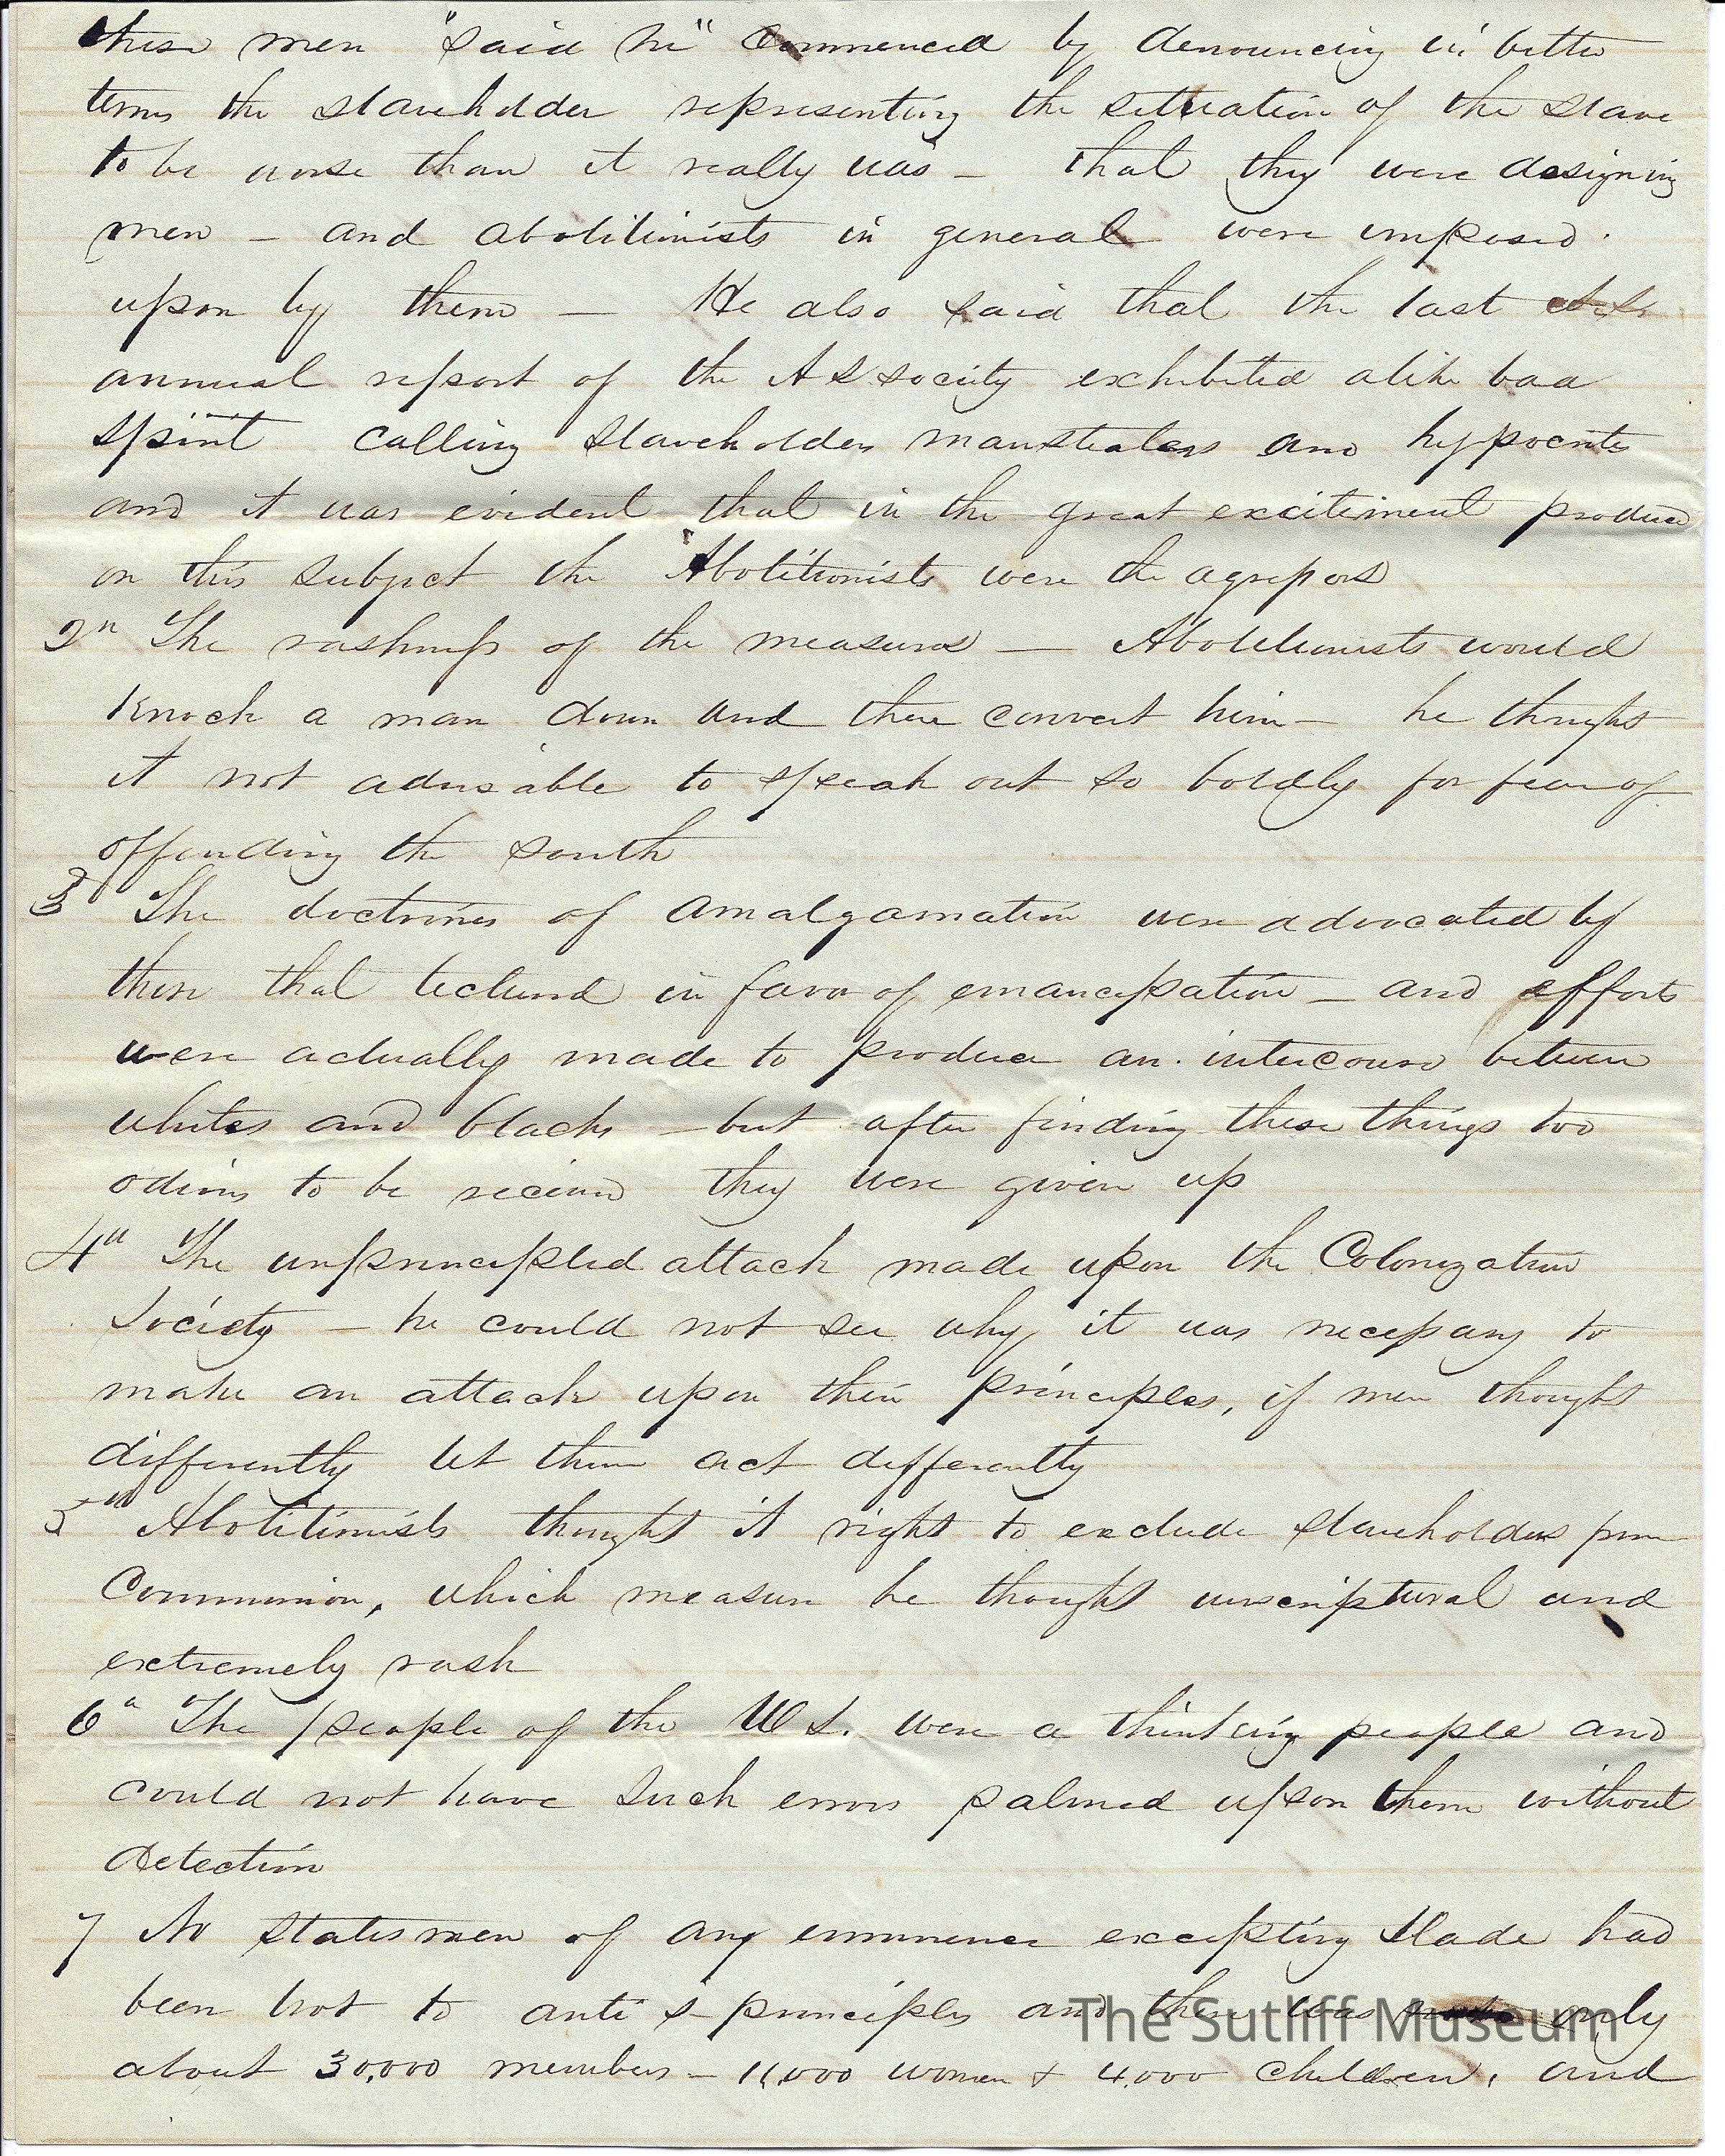 these men "said he" commenced by denouncing in bitter
terms the slaveholder representing the situation of the slave
to be worse than it really was - that they were designing
men - and abolitionists in general were imposed
upon by them - He also said that the last
annual report of the A S society exhibited alike bad
spirit calling slaveholders manstealers and hyppocrites
and it was evident that in the great excitement produced
on this subject the Abolitionists were the agressors
2n The rashness of the measures - Abolitionists would
knock a man down and there convert him - he thought
it not advisable to speak out so boldly for fear of
offending the south
3d The doctrines of amalgamation were advocated by
those that lectured in favor of emancipation - and efforts
were actually made to produce an intercourse between
whites and blacks - but after finding these things too
odious to be recieved they were given up
4th The unprincipled attack made upon the Colonization
Society - he could not see why it was necessary to
make an attack upon their principles, if men thought
differently let them act differently
5th Abolitionists thought it right to exclude slaveholders from
Communion, which measure he thought unscriptural and
extremely rash
6th The people of the U S. were a thinking people and
could not have such errors palmed upon them without
detection
7 No statesmen of any eminence excepting Slade had
been brot to anti s- principles and there was only
about 30,000 members - 11,000 women & 4,000 children, and
The Sutliff Museum